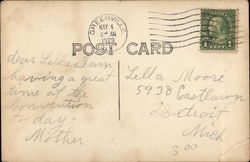 GREENVILLE
MAY 4
8 AM
1929
POST CARD
1 CENT 1
dear Lella I am
having a great
time at the
Convention
to day.
Mother
Lella Moore
5938 Eastlawn
Detroit
Mich
3.00